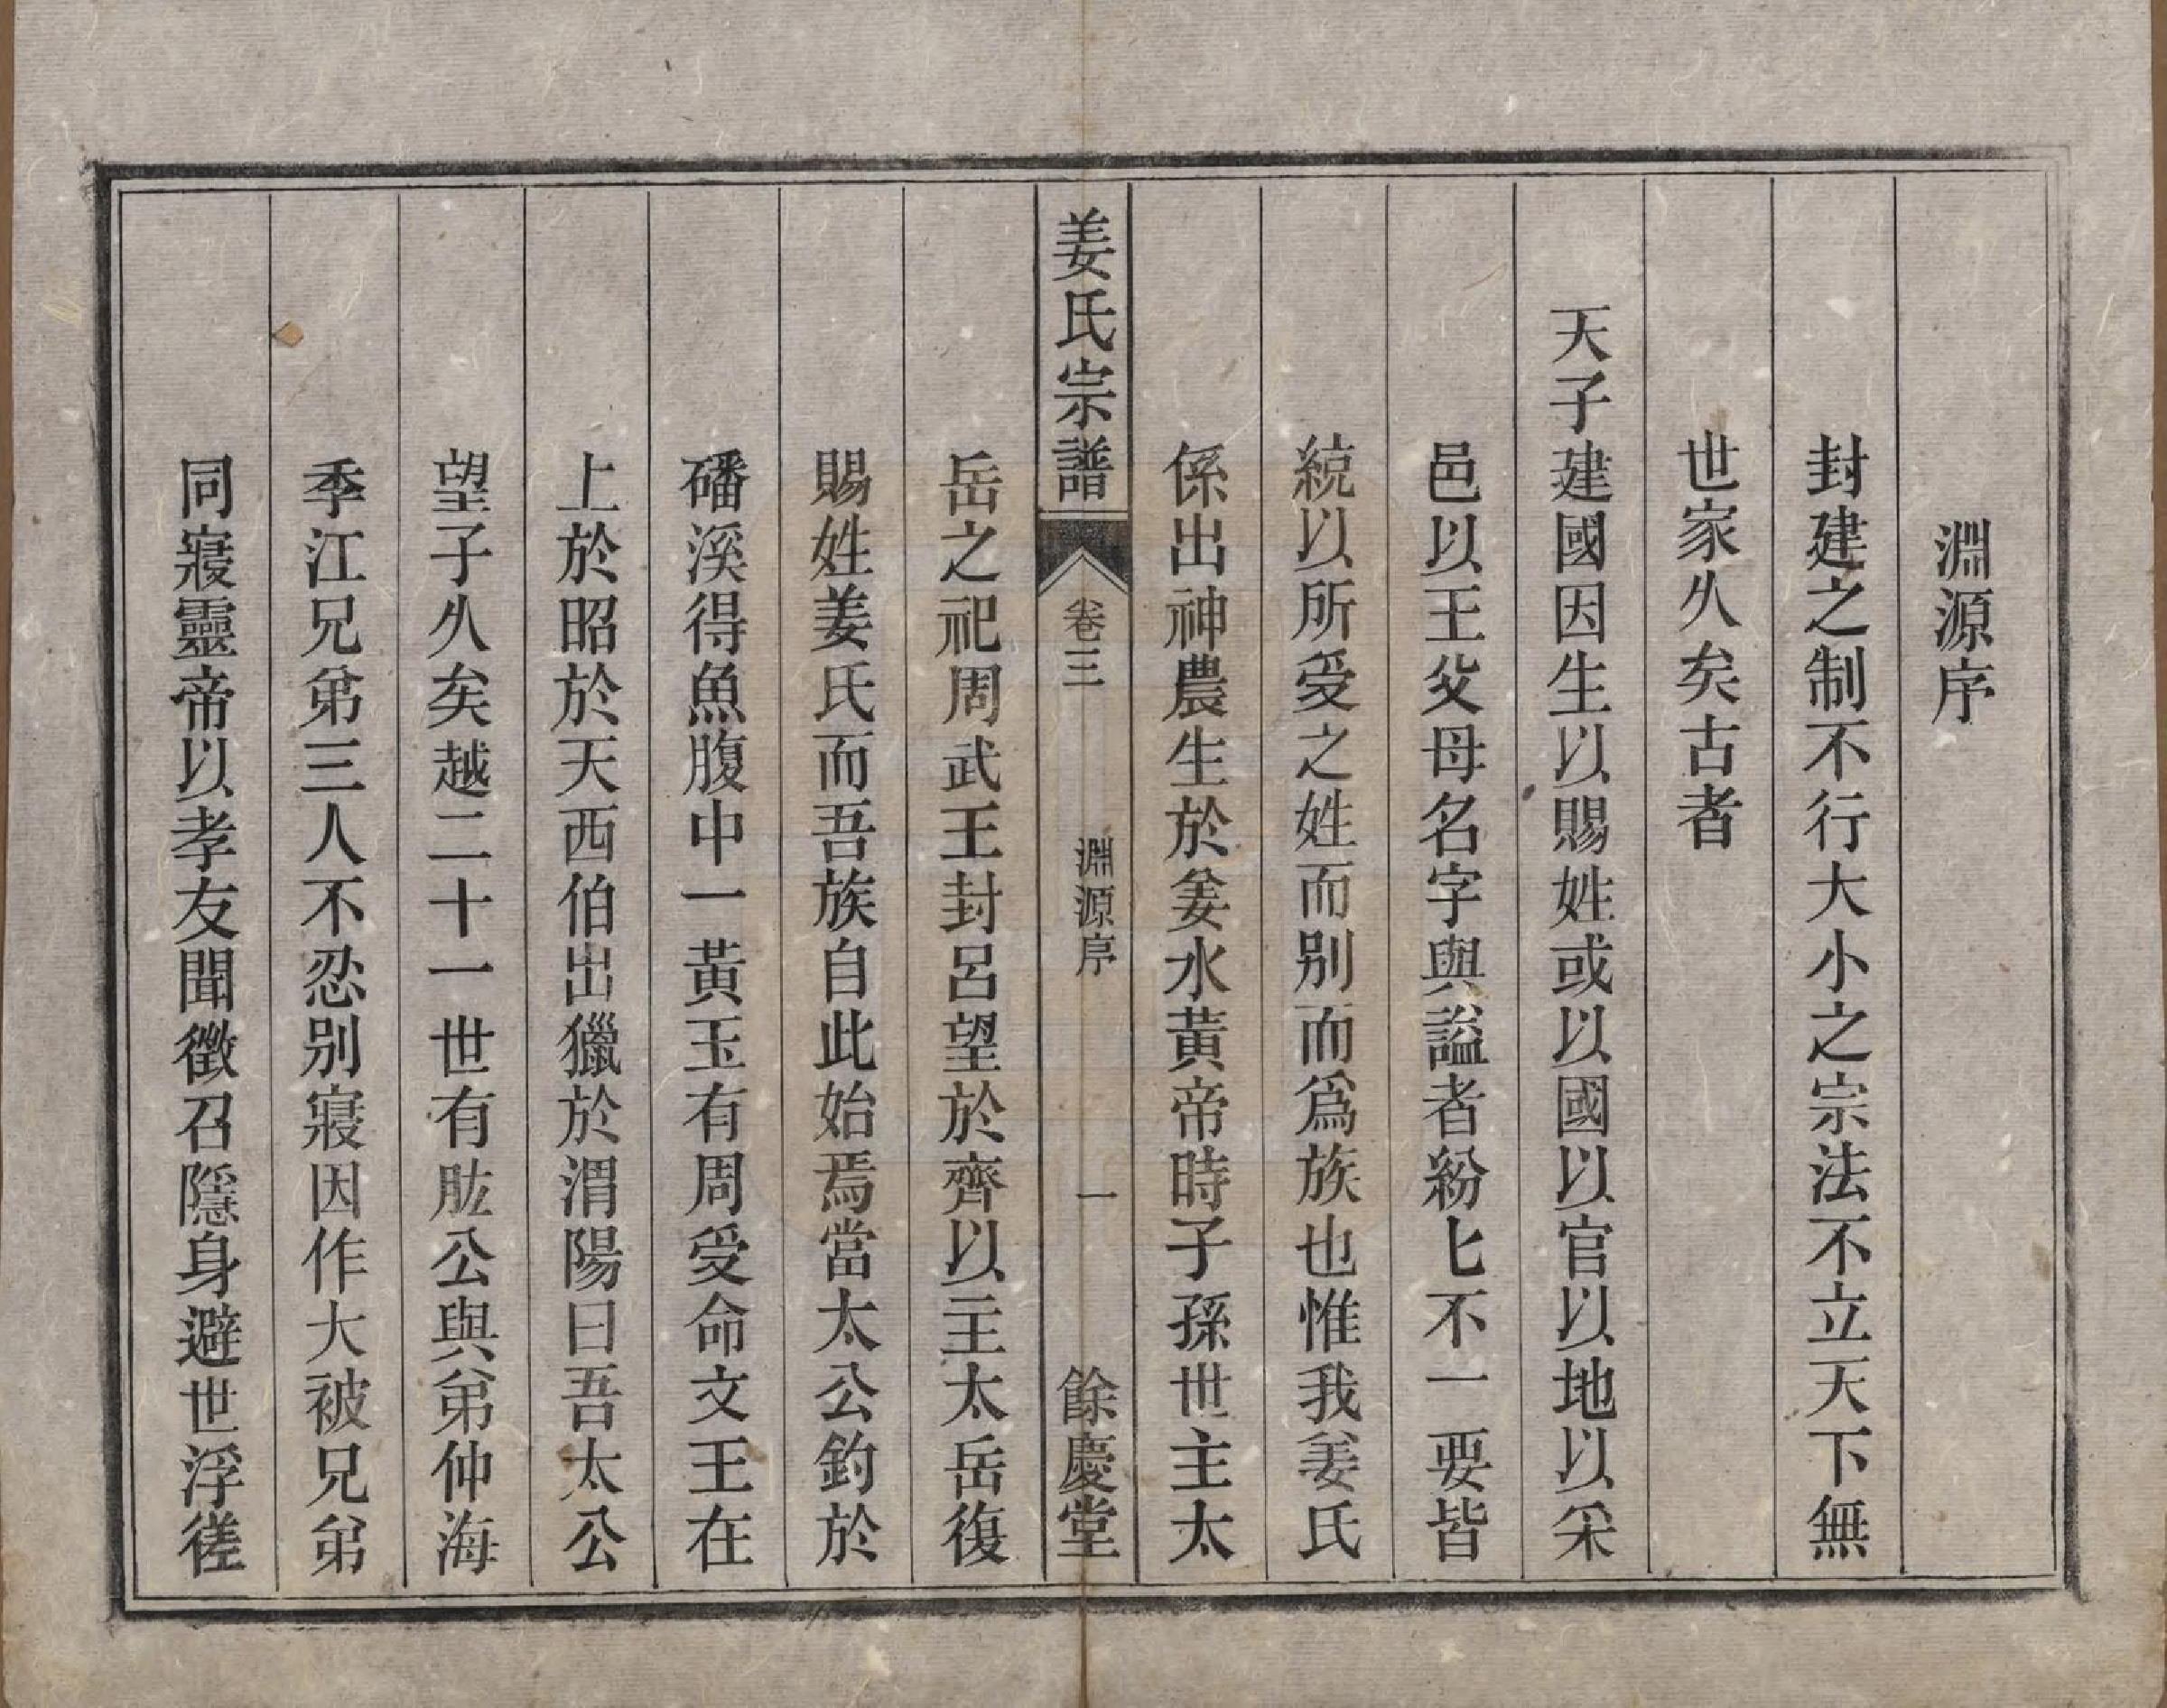 淵源序
封建之制不行大小之宗法不立天下無
世家久矣古者
天子建國因生以賜姓或以國以官以地以采
邑以王父母名字與謚者紛匕不一要皆
統以所受之姓而别而爲族也惟我姜氏
係出神農生於姜水黃帝時子孫世主太
姜氏宗譜
卷三
淵源序
一
餘慶堂
岳之祀周武王封呂望於齊以主太岳復
賜姓姜氏而吾族自此始焉當太公釣於
磻溪得魚腹中一黃玉有周受命文王在
上於昭於天西伯出獵於渭陽曰吾太公
望子久矣越二十一世有肱公與弟仲海
季江兄弟三人不忍别寢因作大被兄弟
同寢靈帝以孝友聞徵召隱身避世浮徙